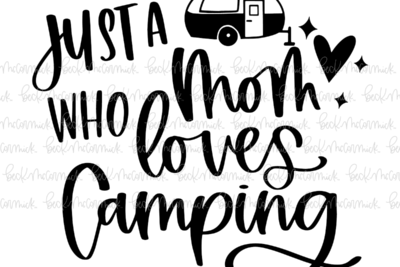 JUST A
WHO Mom
loves
Camping